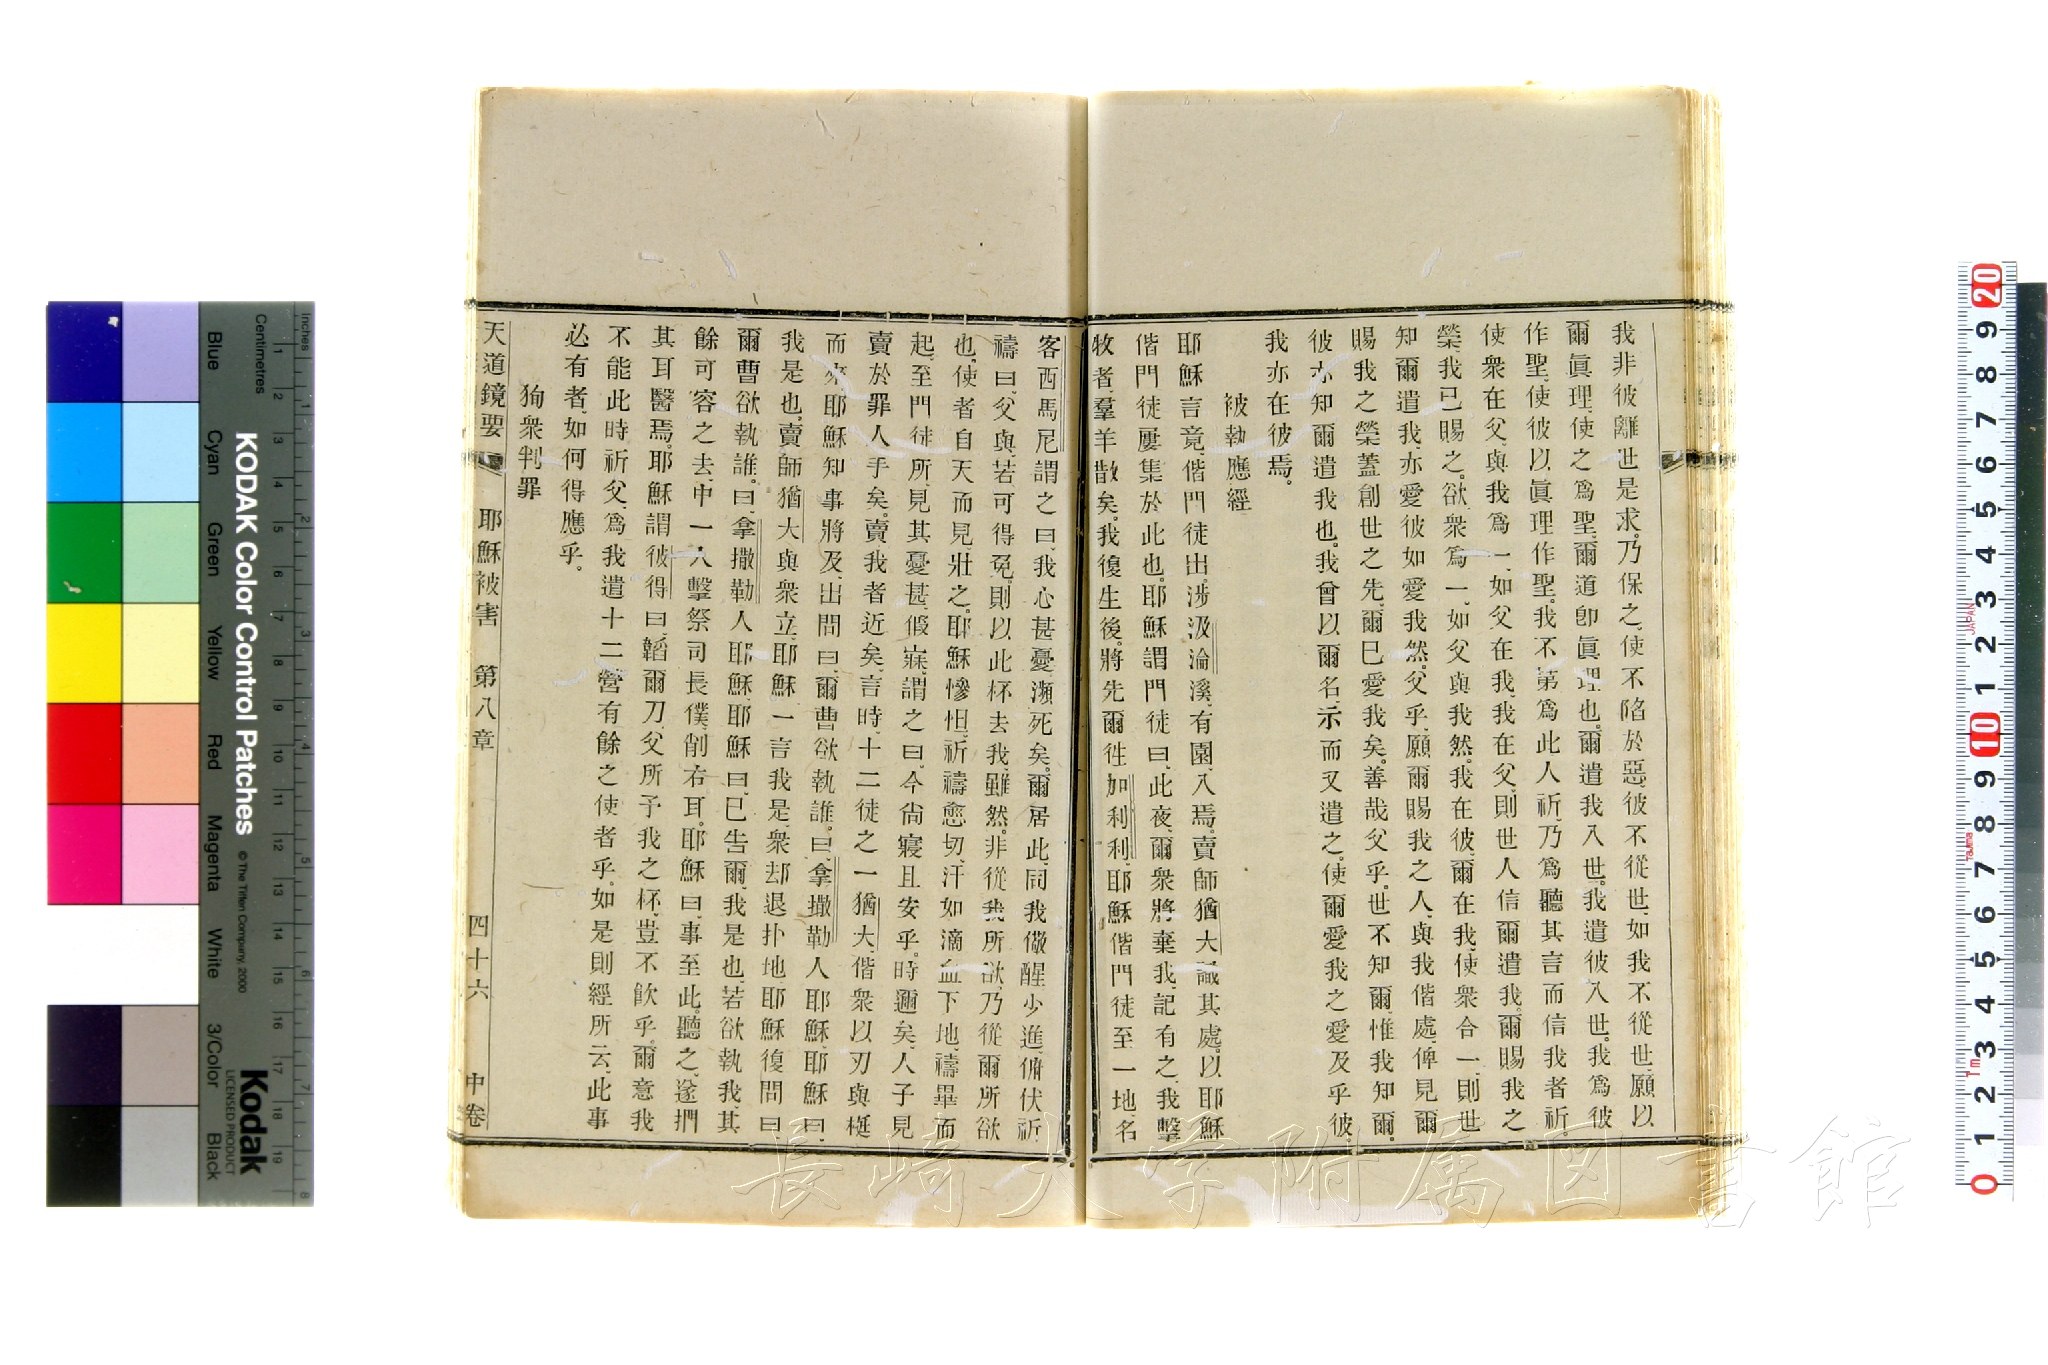 我非彼離世是求。乃保之、使不陷於惡、彼不從世、如我不從世、願以
爾眞理、使之爲聖、爾道卽眞理也、爾遣我入世。我遣彼入世。我爲彼
作聖、使彼以眞理作聖。我不第爲此人祈、乃爲聽其言而信我者祈、
使衆在父、與我爲一、如父在我、我在父、則世人信爾遣我。爾賜我之
榮、我已賜之。欲衆爲一、如父與我然。我在彼、爾在我、使衆合一、則世
知爾遣我、亦愛彼如愛我然。父乎、願爾賜我之人、與我偕處、俾見爾
賜我之榮、蓋創世之先、爾已愛我矣。善哉父乎。世不知爾、惟我知爾。
彼亦知爾遣我也。我曾以爾名、示而又遣之。使爾愛我之愛及乎彼、
我亦在彼焉。
被執應經
耶穌言竟、偕門徒出。涉汲淪溪、有園、入焉。賣師猶大識其處。以耶穌
偕門徒屢集於此也。耶穌謂門徒曰、此夜、爾衆將棄我、記有之、我擊
牧者、羣羊散矣。我復生後。將先爾徃加利利、耶穌偕門徒至一地名
客西馬尼謂之曰、我心甚憂、瀕死矣。爾居此同我儆醒少進、俯伏祈
禱曰、父與、若可得免、則以此杯去我、雖然。非從我所欲、乃從爾所欲
也、使者自天而見、壯之。耶穌慘怛、祈禱愈切、汗如滴血下地、禱畢而
起、至門徒所、見其憂甚、假寐、謂之曰、今尙寢且安乎。時邇矣、人子見
賣於罪人手矣。賣我者近矣、言時、十二徒之一猶大、偕衆以刃與梃
而來、耶穌知事將及、出問曰、爾曹欲執誰。曰、拿撒勒人耶穌、耶穌曰、
我是也、賣師猶大、與衆立、耶穌一言我是、衆却退扑地、耶穌復問曰
爾曹欲執誰。曰、拿撒勒人耶穌、耶穌曰、已告爾、我是也、若欲執我、其
餘可容之去、中一人擊祭司長僕、削右耳。耶穌曰、事至此。聽之、遂捫
其耳醫焉。耶穌謂彼得曰、韜爾刀、父所予我之杯、豈不飮乎。爾意我
不能此時祈父、爲我遣十二營有餘之使者乎。如是則經所云、此事
必有者、如何得應乎。
狥衆判罪
天道鏡要 耶穌被害 第八章 四十六 中卷
長崎大学附属図書館
KODAK Color Control Patches
© The Tiffen Company, 2000
Kodak
LICENSED PRODUCT
Inches
Centimetres
Blue
Cyan
Green
Yellow
Red
Magenta
White
3/Color
Black
1 2 3 4 5 6 7 8
1 2 3 4 5 6 7 8 9 10 11 12 13 14 15 16 17 18 19
20 9 8 7 6 5 4 3 2 1 10 9 8 7 6 5 4 3 2 1 0
JAPAN
Tajima
1m